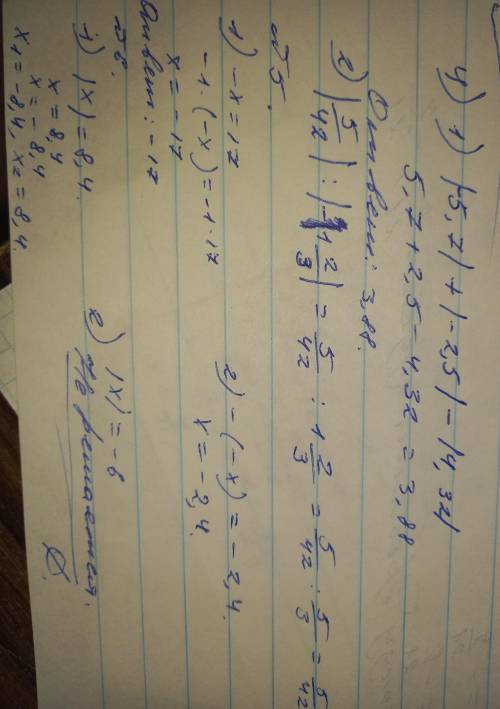 4) 1) |5,7| + |-2,5| - |4,32|
5,7 + 2,5 - 4,32 = 3,88
Ответ: 3,88.
2) |5/42| : |-1 2/3| = 5/42 : 1 2/3 = 5/42 : 5/3 = 5/42
№5.
1) -x = 17
-1·(-x) = -1·17
x = -17
Ответ: -17
2) -(-x) = -2,4.
x = -2,4.
№6.
1) |x| = 8,4.
x = 8,4
x = -8,4
x₁ = -8,4, x₂ = 8,4.
2) |x| = -6
решается.
Ø.